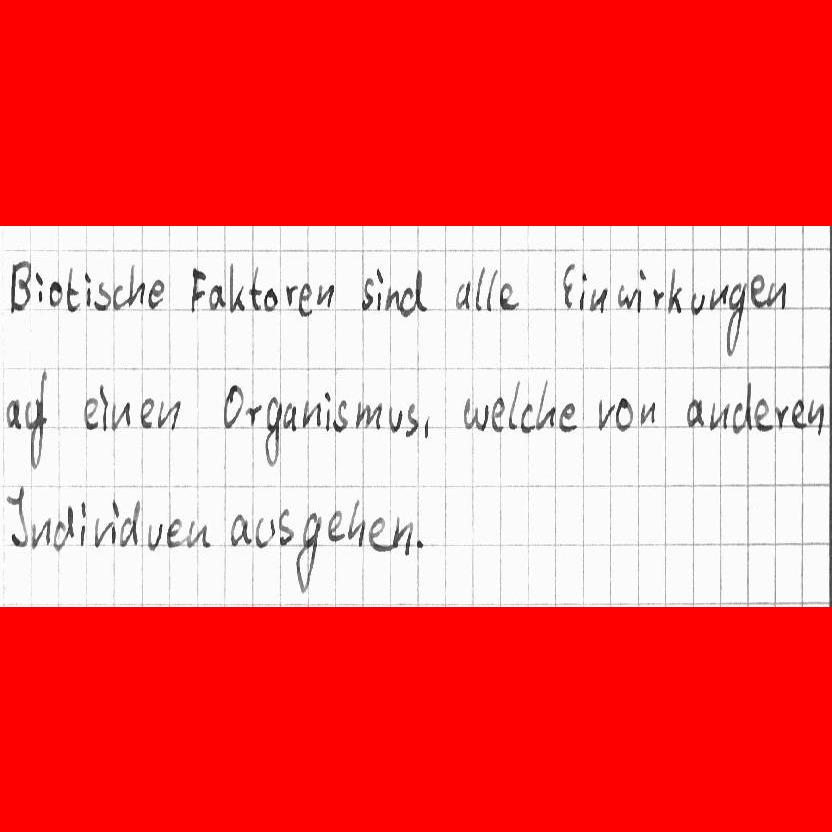 Biotische Faktoren sind alle Einwirkungen
auf einen Organismus, welche von anderen
Individuen ausgehen.